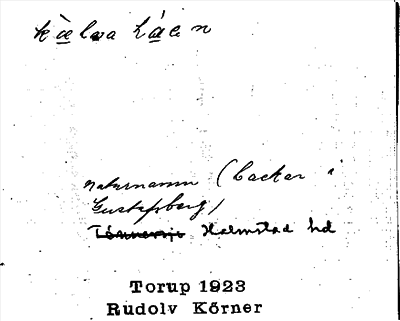 kàlva háan
naturnamn (backar i
Gustafsberg)
Tönnersjö Halmstad hd
Torup 1923
Rudolv Körner